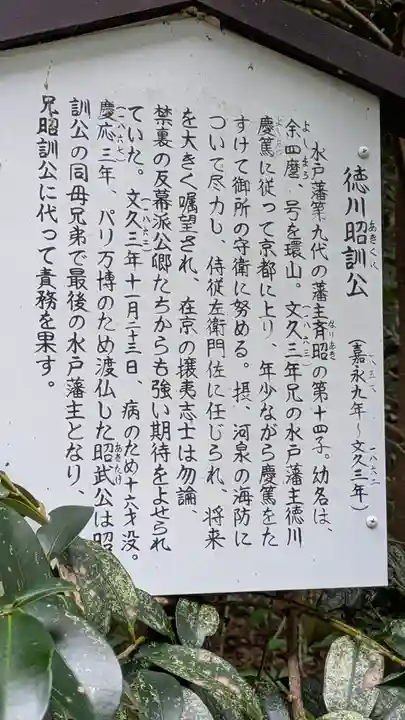 徳川昭訓公
あきくに
(嘉永九年～文久三年)
水戸藩第九代の藩主斉昭の第十四子。幼名は、
余四麿、号を環山。文久三年兄の水戸藩主徳川
慶篤に従って京都に上り、年少ながら慶篤をた
すけて御所の守衛に努める。摂、河泉の海防に
ついて尽力し、侍従左衛門佐に任じられ、将来
を大きく嘱望され、在京の攘夷志士は勿論
禁裏の反幕派公卿たちからも強い期待をよせられ
ていた。文久三年十一月二十三日、病のため十六才没。
慶応三年、パリ万博のため渡仏した昭武公は昭
訓公の同母兄弟で最後の水戸藩主となり、
兄昭訓公に代って責務を果す。